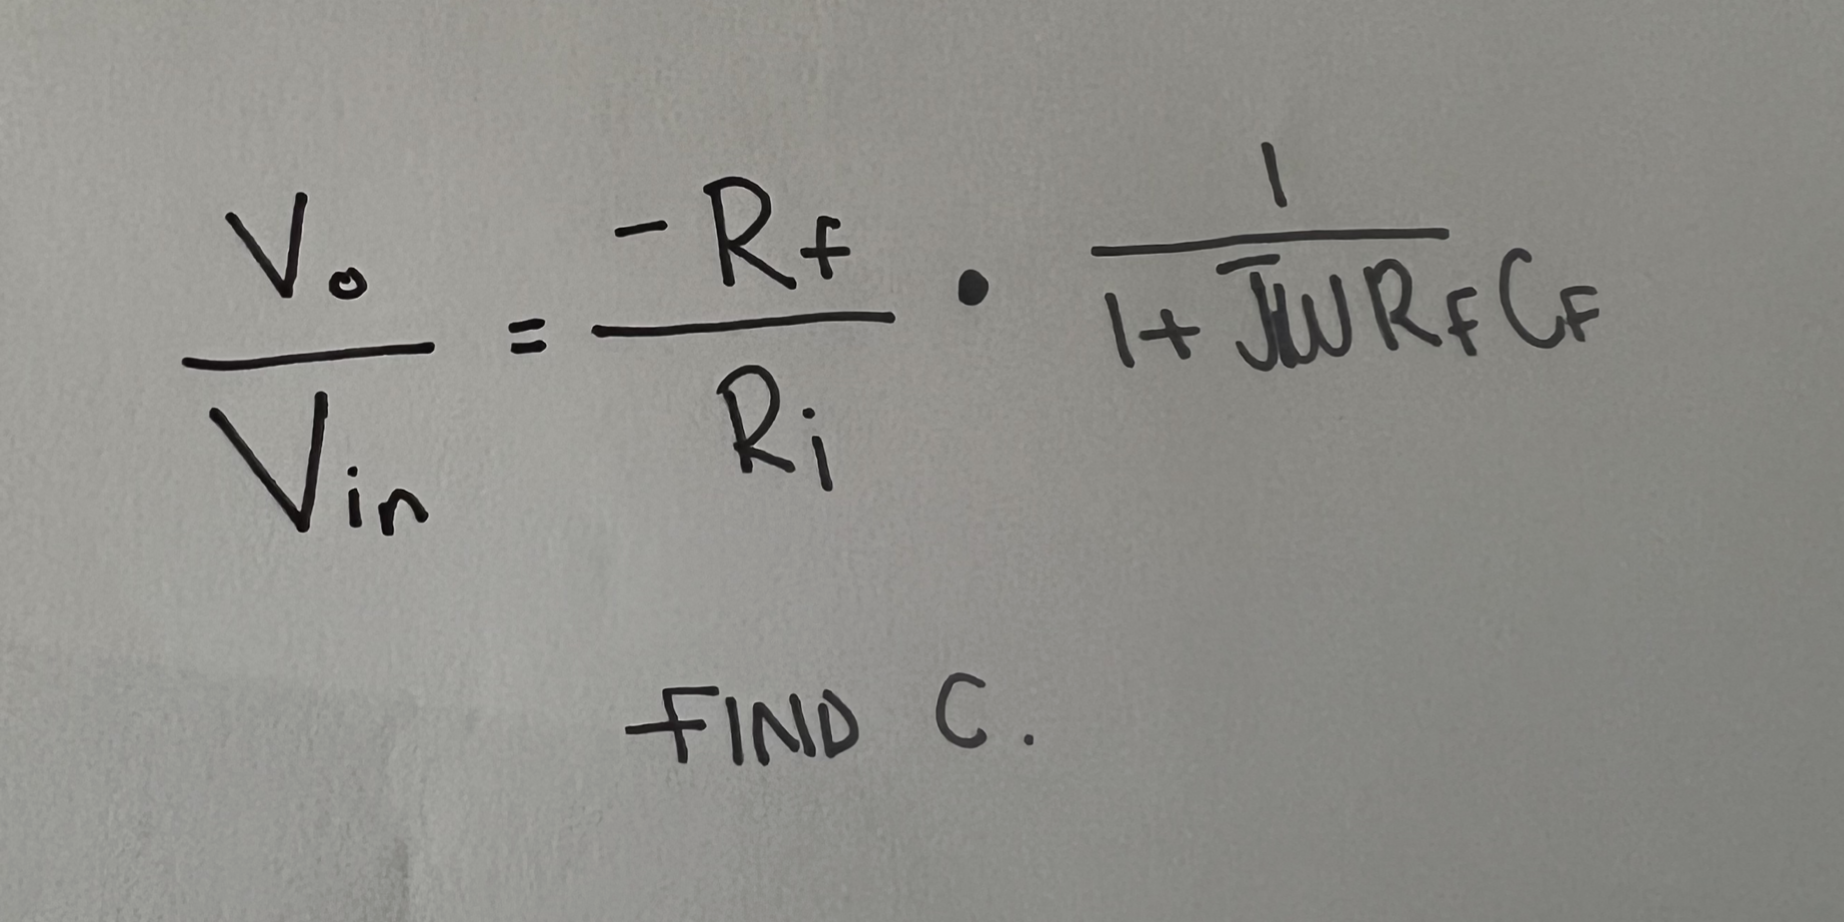 Vo/Vin = -Rf/Ri • 1/1+JWRFCF
FIND C.